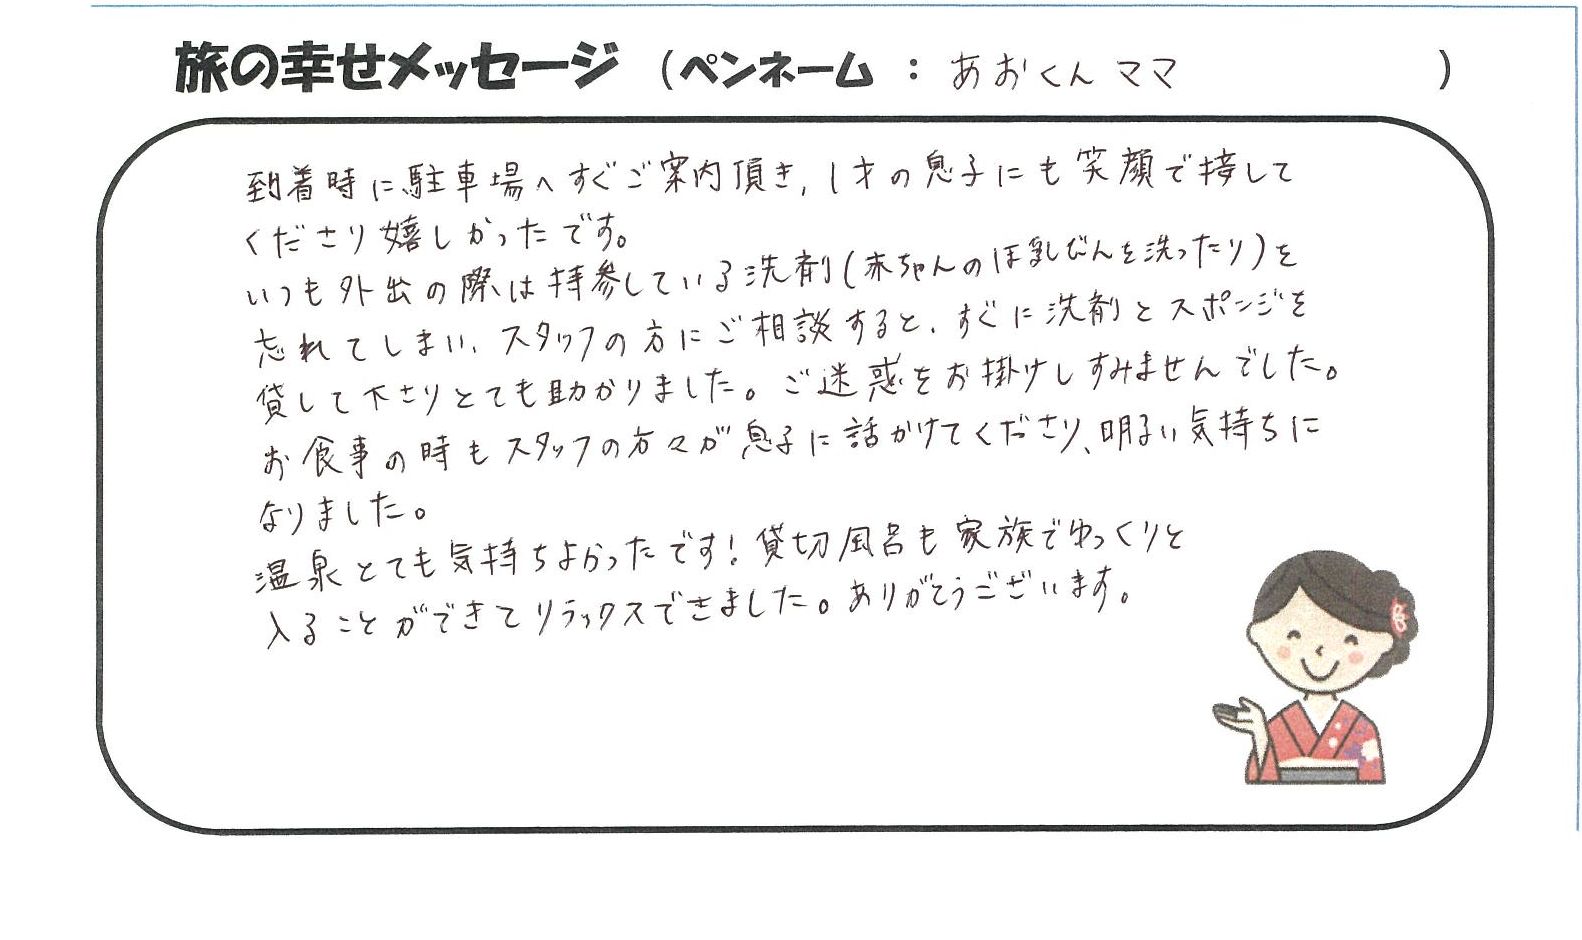 旅の幸せメッセージ（ペンネーム ： あおくんママ ）
到着時に駐車場へすぐご案内頂き、1才の息子にも笑顔で接して
くださり嬉しかったです。
いつも外出の際は持参している洗剤(赤ちゃんのほ乳びんを洗ったり)を
忘れてしまい、スタッフの方にご相談すると、すぐに洗剤とスポンジを
貸して下さりとても助かりました。ご迷惑をお掛けしすみませんでした。
お食事の時もスタッフの方々が息子に話かけてくださり、明るい気持ちに
なりました。
温泉とても気持ちよかったです！貸切風呂も家族でゆっくりと
入ることができてリラックスできました。ありがとうございます。